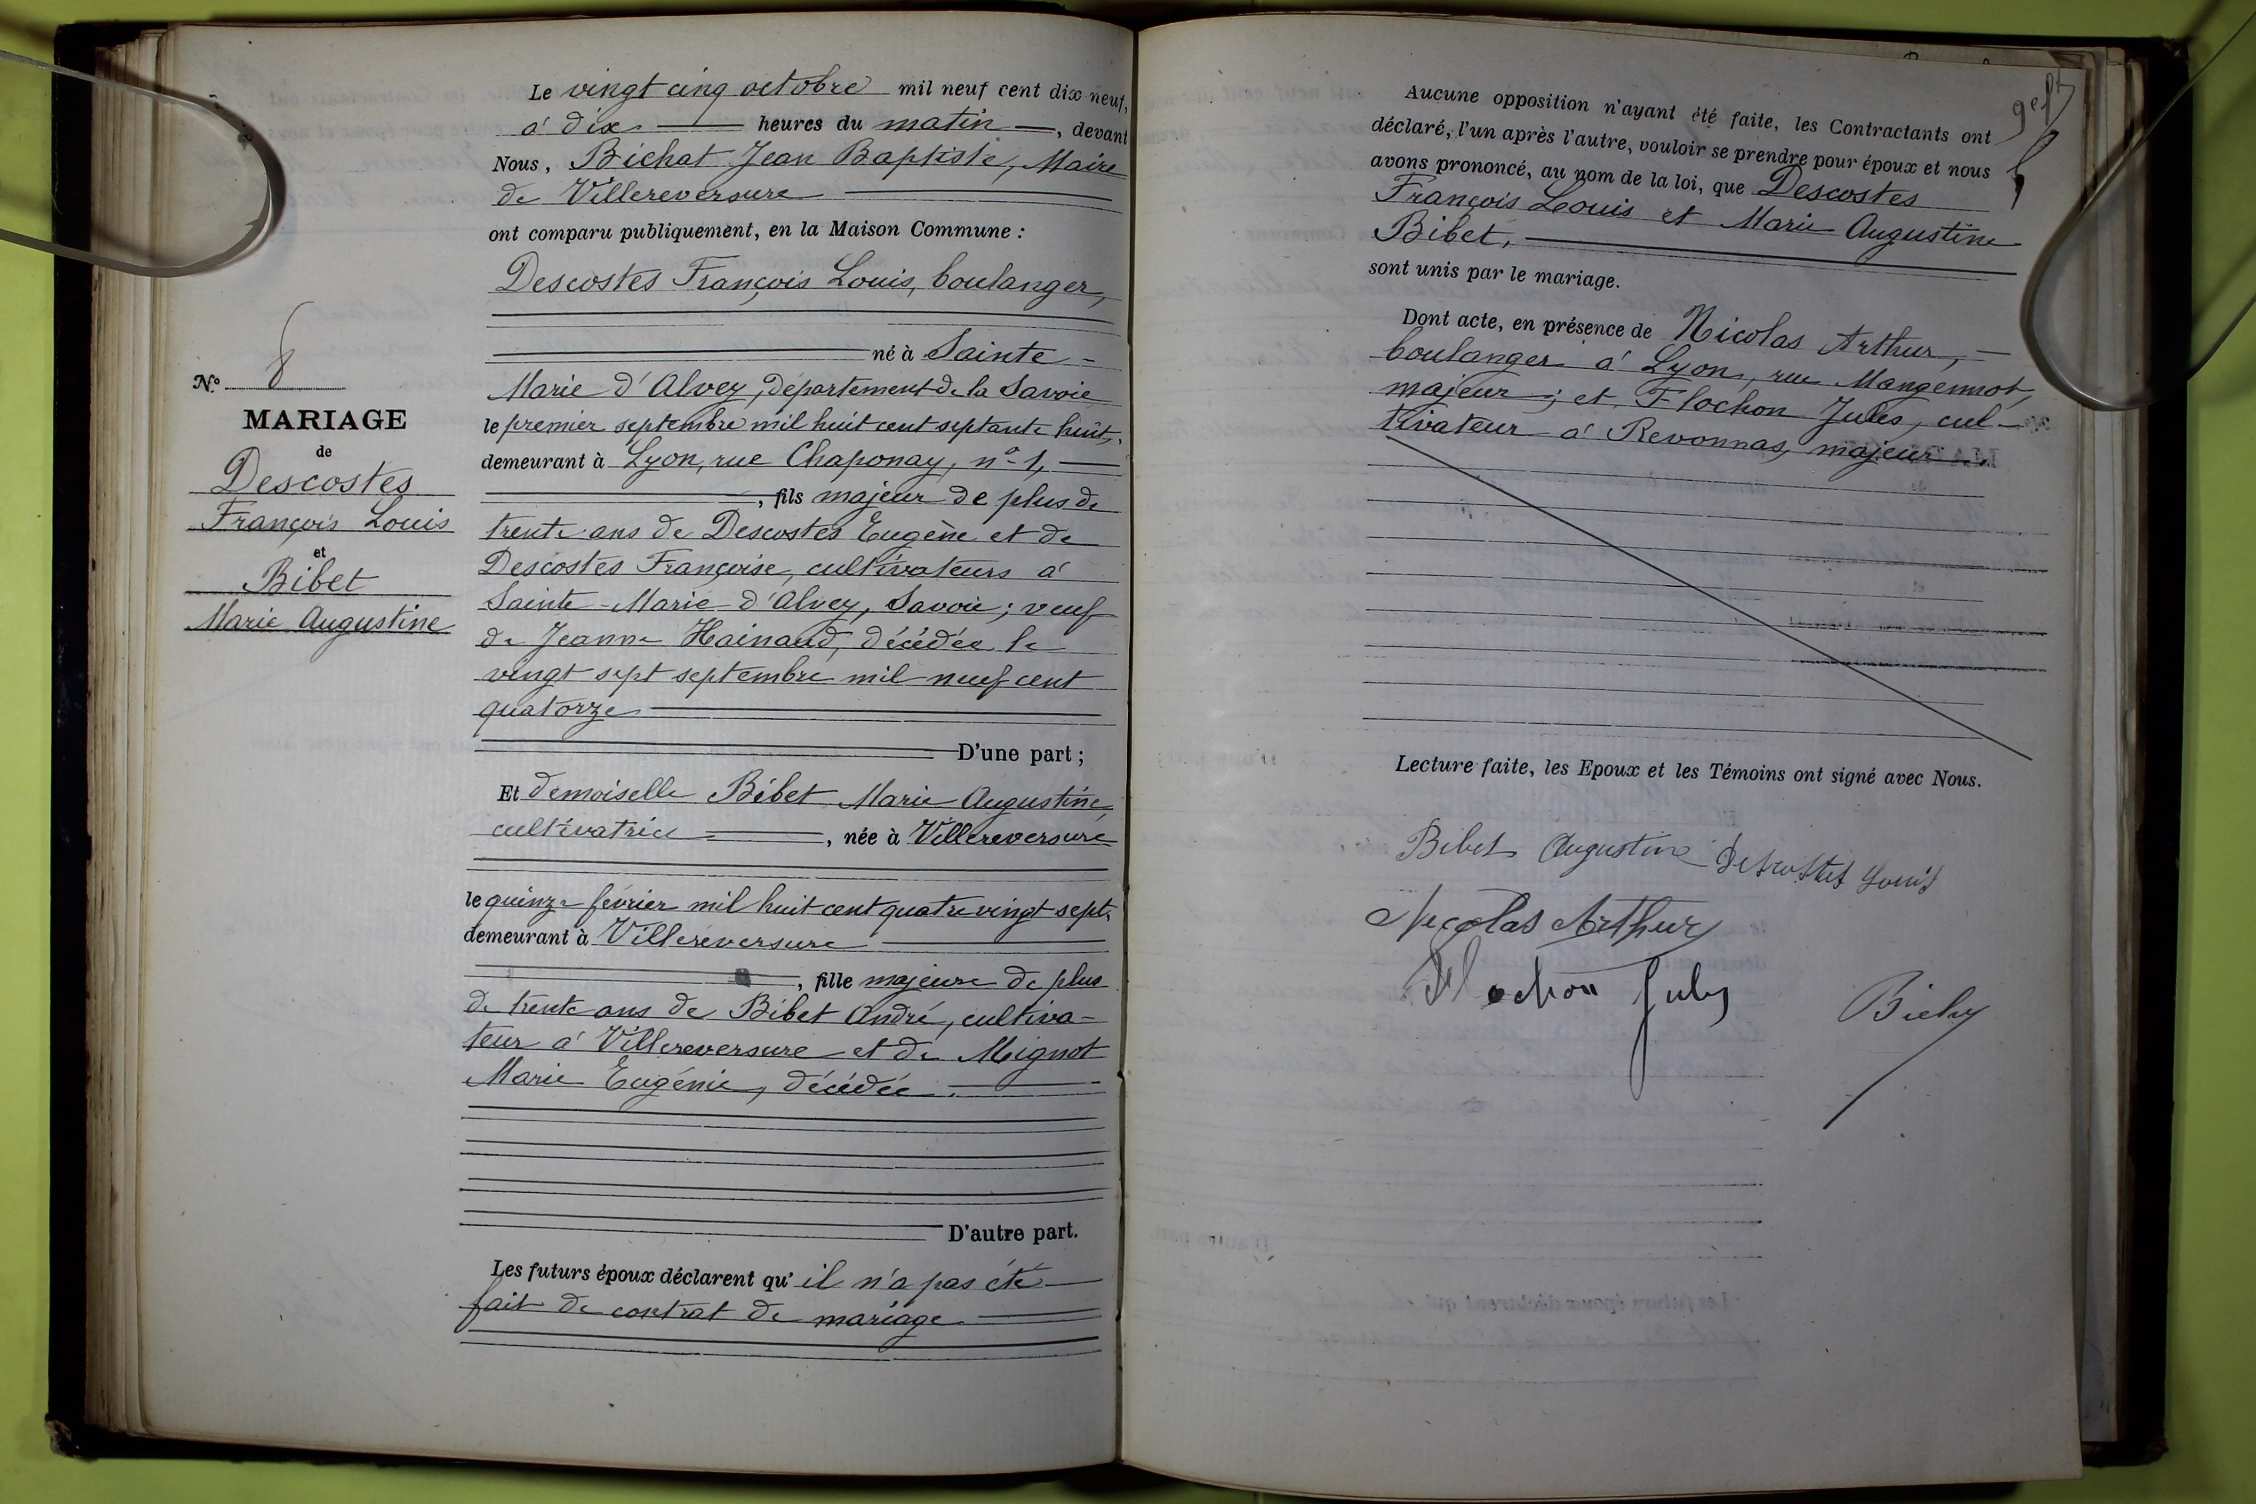 N° 8
MARIAGE
de
Descostes
François Louis
et
Bibet
Marie Augustine
Le vingt cinq octobre mil neuf cent dix neuf,
à dix heures du matin, devant
Nous, Bichat Jean Baptiste, Maire
de Villereversure
ont comparu publiquement, en la Maison Commune :
Descostes François Louis, boulanger,
né à Sainte-
Marie d'Alvey, département de la Savoie
le premier septembre mil huit cent septante huit,
demeurant à Lyon, rue Chaponay, n° 1,
, fils majeur de plus de
trente ans de Descostes Eugène et de
Descostes Françoise, cultivateurs à
Sainte-Marie-d'Alvey, Savoie ; veuf
de Jeanne Hainaud, décédée le
vingt sept septembre mil neuf cent
quatorze
D'une part ;
Et demoiselle Bibet Marie Augustine,
cultivatrice, née à Villereversure
le quinze février mil huit cent quatre vingt sept,
demeurant à Villereversure
, fille majeure de plus
de trente ans de Bibet André, cultiva-
teur à Villereversure et de Mignot
Marie Eugénie, décédée.
D'autre part.
Les futurs époux déclarent qu'il n'a pas été
fait de contrat de mariage.
Aucune opposition n'ayant été faite, les Contractants ont
déclaré, l'un après l'autre, vouloir se prendre pour époux et nous
avons prononcé, au nom de la loi, que Descostes
François Louis et Marie Augustine
Bibet,
sont unis par le mariage.
Dont acte, en présence de Nicolas Arthur,
boulanger à Lyon, rue Mangennot,
majeur ; et Flochon Jules, cul-
tivateur à Revonnas, majeur.
Lecture faite, les Epoux et les Témoins ont signé avec Nous.
Bibet Augustine Descostes Louis
Nicolas Arthur
Flochon Jules